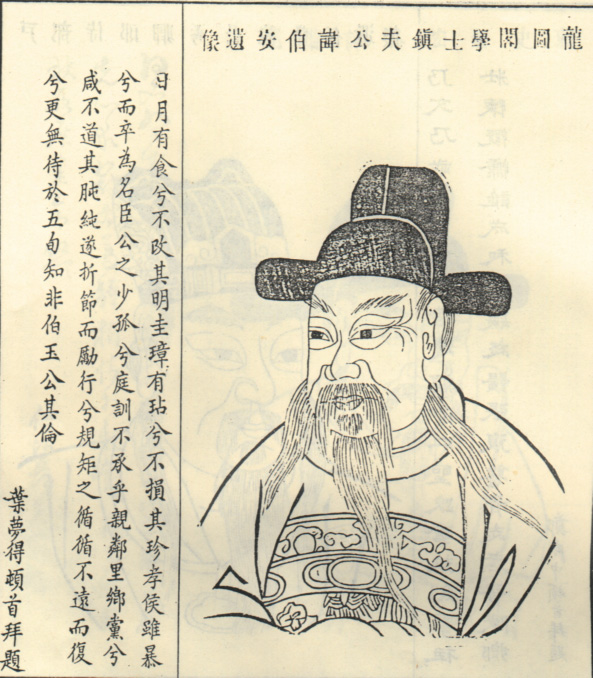 龍圖閣學士鎮夫公諱伯安遺像
日月有食兮不改其明圭璋有玷兮不損其珍孝侯雖暴
兮而卒為名臣公之少孤兮庭訓不承乎親鄰里鄉黨兮
咸不道其肫純遂折節而勵行兮規矩之循循不遠而復
兮更無待於五旬知非伯玉公其倫
葉夢得頓首拜題